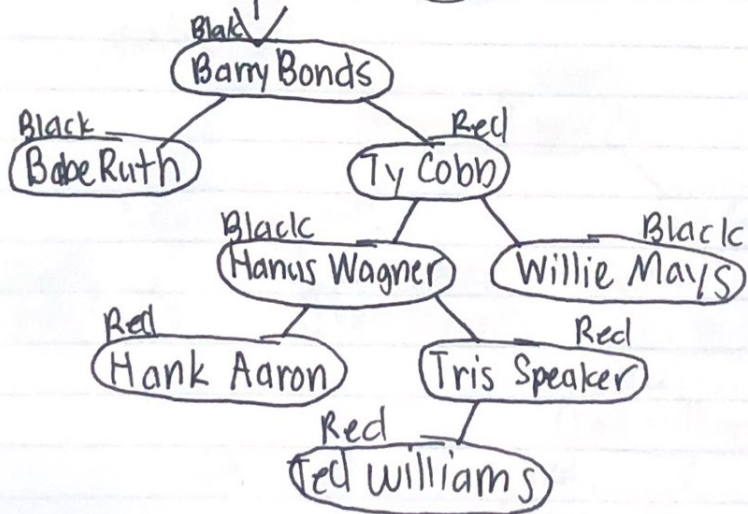 Black
Barry Bonds
Black
Babe Ruth
Red
Ty Cobb
Black
Hanus Wagner
Black
Willie Mays
Red
Hank Aaron
Red
Tris Speaker
Red
Ted Williams